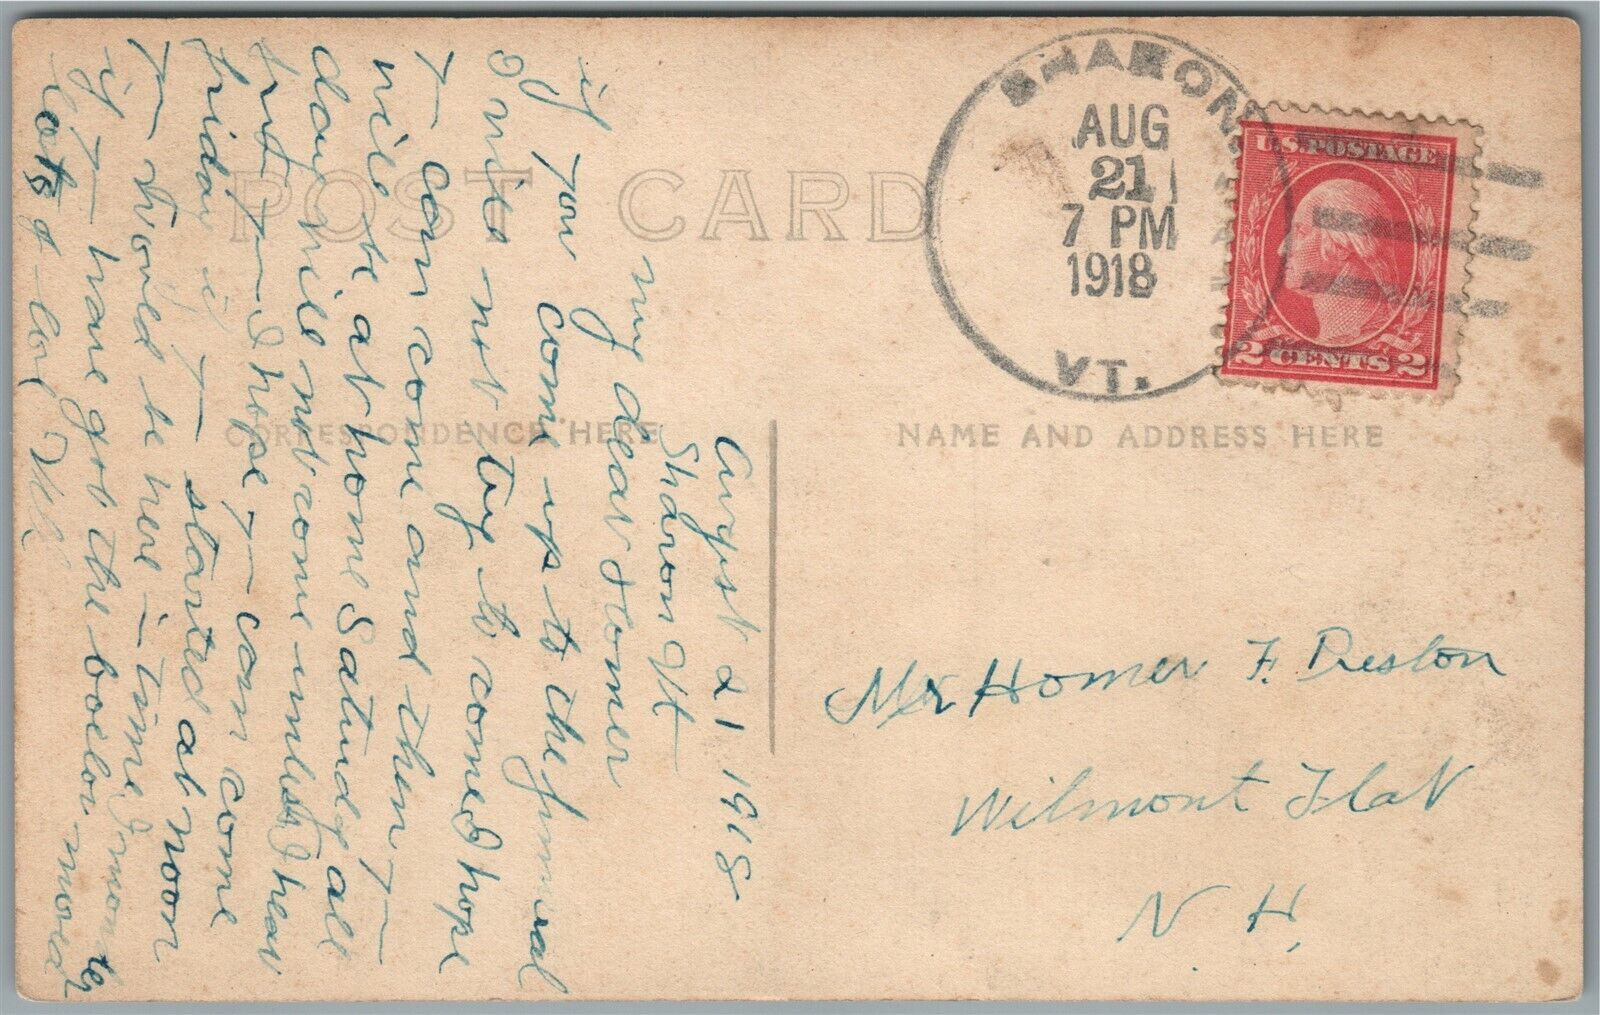 POST CARD
CORRESPONDENCE HERE
NAME AND ADDRESS HERE
SHARON
AUG
21
7 PM
1918
VT.
U.S. POSTAGE
2 CENTS 2
August 21 1918
Sharon Vt
my dear Homer
if you come up to the funeral
I will not try to come I hope
can come and then
will be at home Saturday all
day will not come unless I hear
I hope can come
friday if started at noon
would be here in time I
if have got the
lots of
Mr Homer F. Preston
Wilmont Flat
N H.